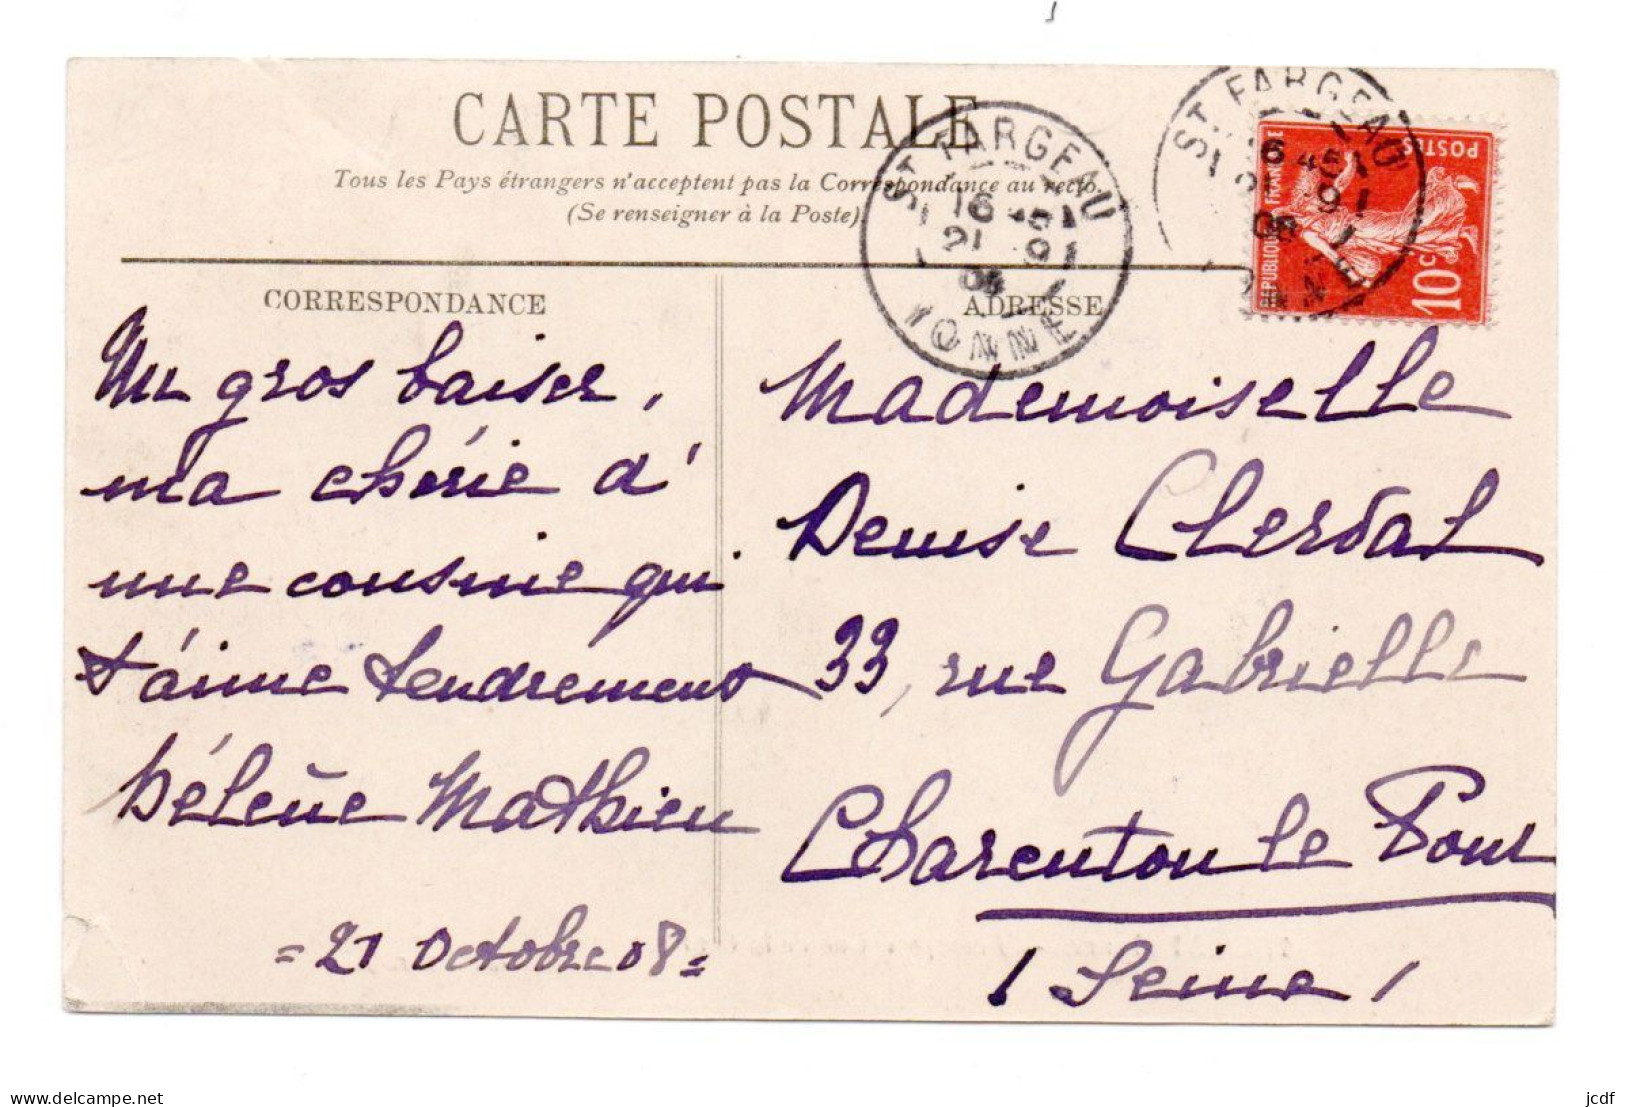 CARTE POSTALE
Tous les Pays étrangers n'acceptent pas la Correspondance au recto.
(Se renseigner à la Poste)
CORRESPONDANCE
Un gros baiser,
ma chérie d'
une cousine qui
t'aime tendrement
Hélène Mathieu
= 21 Octobre 08 =
ADRESSE
Mademoiselle
Denise Clerval
33, rue Gabrielle
Charenton le Pont
( Seine )
ST FARGEAU
16 45
21 9
08
YONNE
ST FARGEAU
16 45
21 9
08
YONNE
REPUBLIQUE FRANÇAISE
POSTES
10c
delcampe.net
jcdf